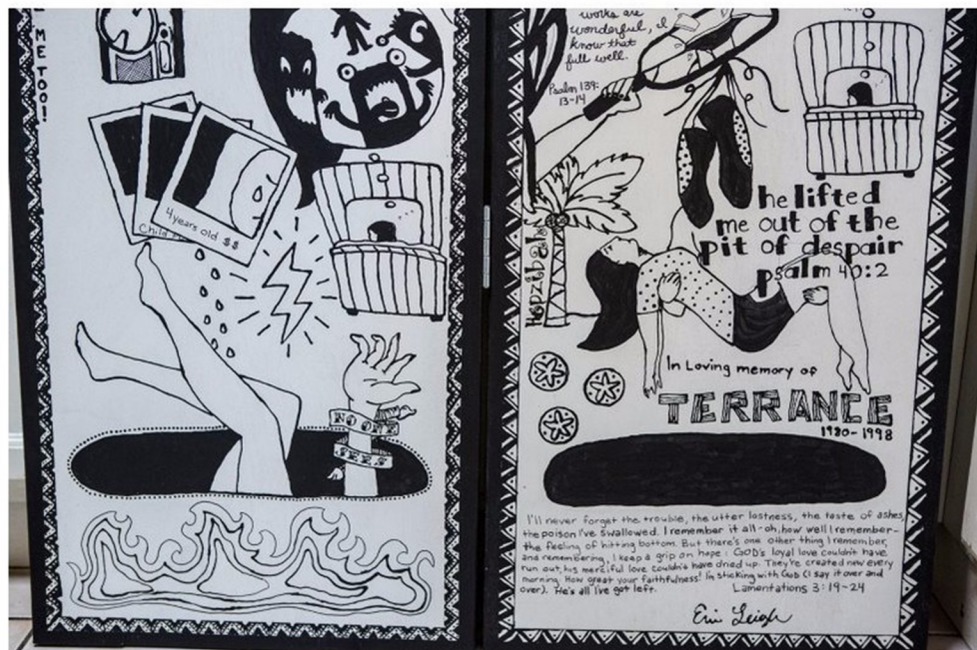 ME TOO!
4 years old $$
Child
NO ONE
SEES
works are
wonderful, I
know that
full well.
Psalm 139:
13-14
Hepzibah
he lifted
me out of the
pit of despair
psalm 40:2
In Loving memory of
TERRANCE
1980-1998
I'll never forget the trouble, the utter lostness, the taste of ashes,
the poison I've swallowed. I remember it all-oh, how well I remember-
the feeling of hitting bottom. But there's one other thing I remember,
and remembering, I keep a grip on hope: GOD's loyal love couldn't have
run out, his merciful love couldn't have dried up. They're created new every
morning. How great your faithfulness! I'm sticking with God (I say it over and
over). He's all I've got left.
Lamentations 3:19-24
Erin Leigh